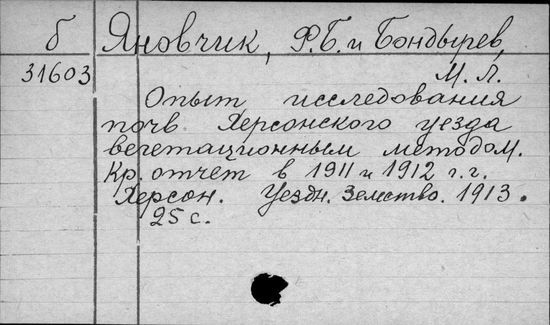 б Яновчик, Ф.Б. и Бондырев,
31603 М. Л.
Опыт исследования
почв Херсонского уезда
вегетационным методом.
Кр. отчет в 1911 и 1912 г.г.
Херсон. Уездн. Земство. 1913.
25 с.